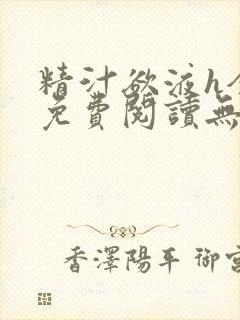 精汁欲液h
免費閱讀無
香澤陽平 御宮